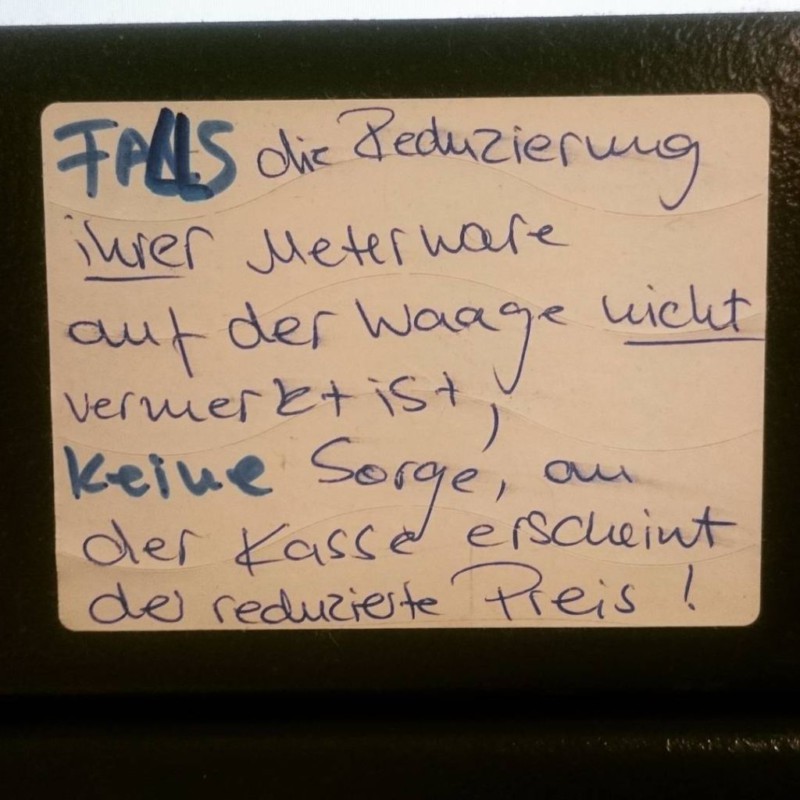 FALLS die Reduzierung
ihrer Meterware
auf der Waage nicht
vermerkt ist,
keine Sorge, an
der Kasse erscheint
der reduzierte Preis !